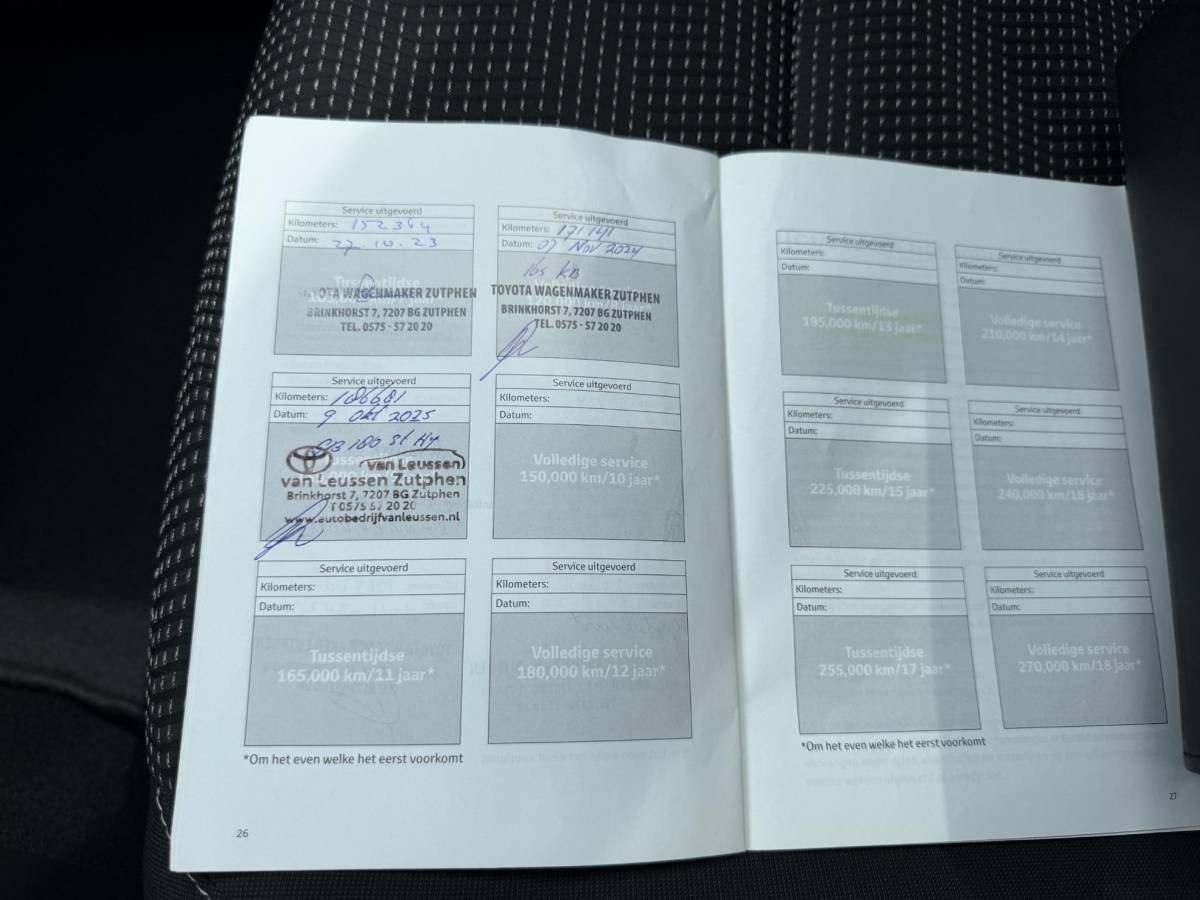 Service uitgevoerd
Kilometers: 152364
Datum: 27.10.23
TOYOTA WAGENMAKER ZUTPHEN
BRINKHORST 7, 7207 BG ZUTPHEN
TEL. 0575 - 57 20 20
Service uitgevoerd
Kilometers: 171141
Datum: 07 Nov 2024
165 KB
TOYOTA WAGENMAKER ZUTPHEN
BRINKHORST 7, 7207 BG ZUTPHEN
TEL. 0575 - 57 20 20
Service uitgevoerd
Kilometers: 186681
Datum: 9 Okt 2025
180
van Leussen
van Leussen Zutphen
Brinkhorst 7, 7207 BG Zutphen
T 0575 57 20 20
www.autobedrijfvanleussen.nl
Service uitgevoerd
Kilometers:
Datum:
Volledige service
150,000 km/10 jaar*
Service uitgevoerd
Kilometers:
Datum:
Tussentijdse
165,000 km/11 jaar*
Service uitgevoerd
Kilometers:
Datum:
Volledige service
180,000 km/12 jaar*
*Om het even welke het eerst voorkomt
26
Service uitgevoerd
Kilometers:
Datum:
Tussentijdse
195,000 km/13 jaar*
Service uitgevoerd
Kilometers:
Datum:
Volledige service
210,000 km/14 jaar*
Service uitgevoerd
Kilometers:
Datum:
Tussentijdse
225,000 km/15 jaar*
Service uitgevoerd
Kilometers:
Datum:
Volledige service
240,000 km/16 jaar*
Service uitgevoerd
Kilometers:
Datum:
Tussentijdse
255,000 km/17 jaar*
Service uitgevoerd
Kilometers:
Datum:
Volledige service
270,000 km/18 jaar*
*Om het even welke het eerst voorkomt
27